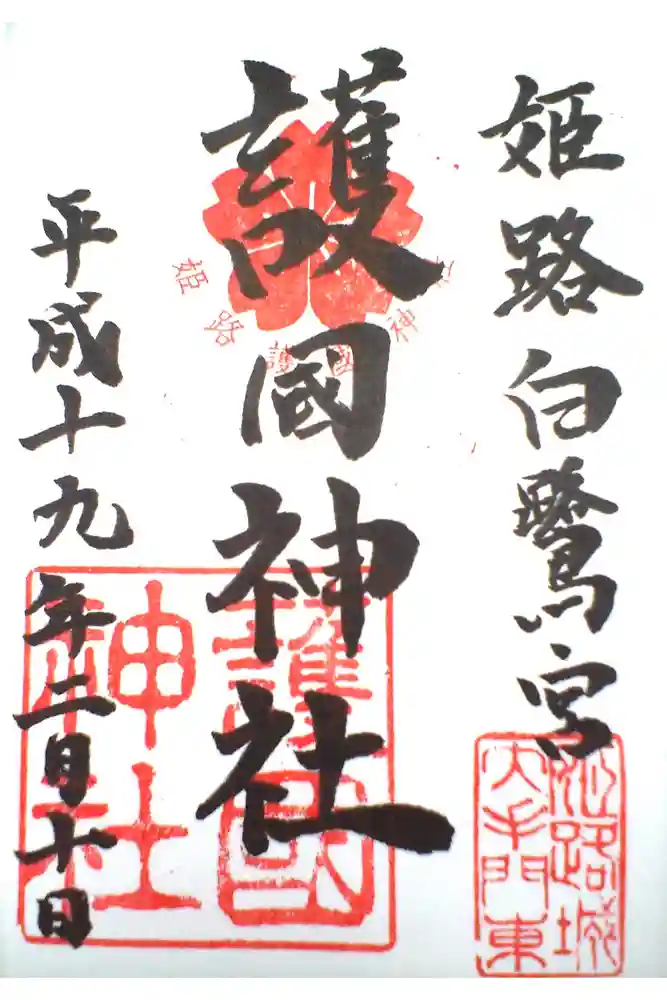 姫路白鷺宮
護國神社
平成十九年二月十日
姫路護國神社
護國
神社
姫路城
大手門東